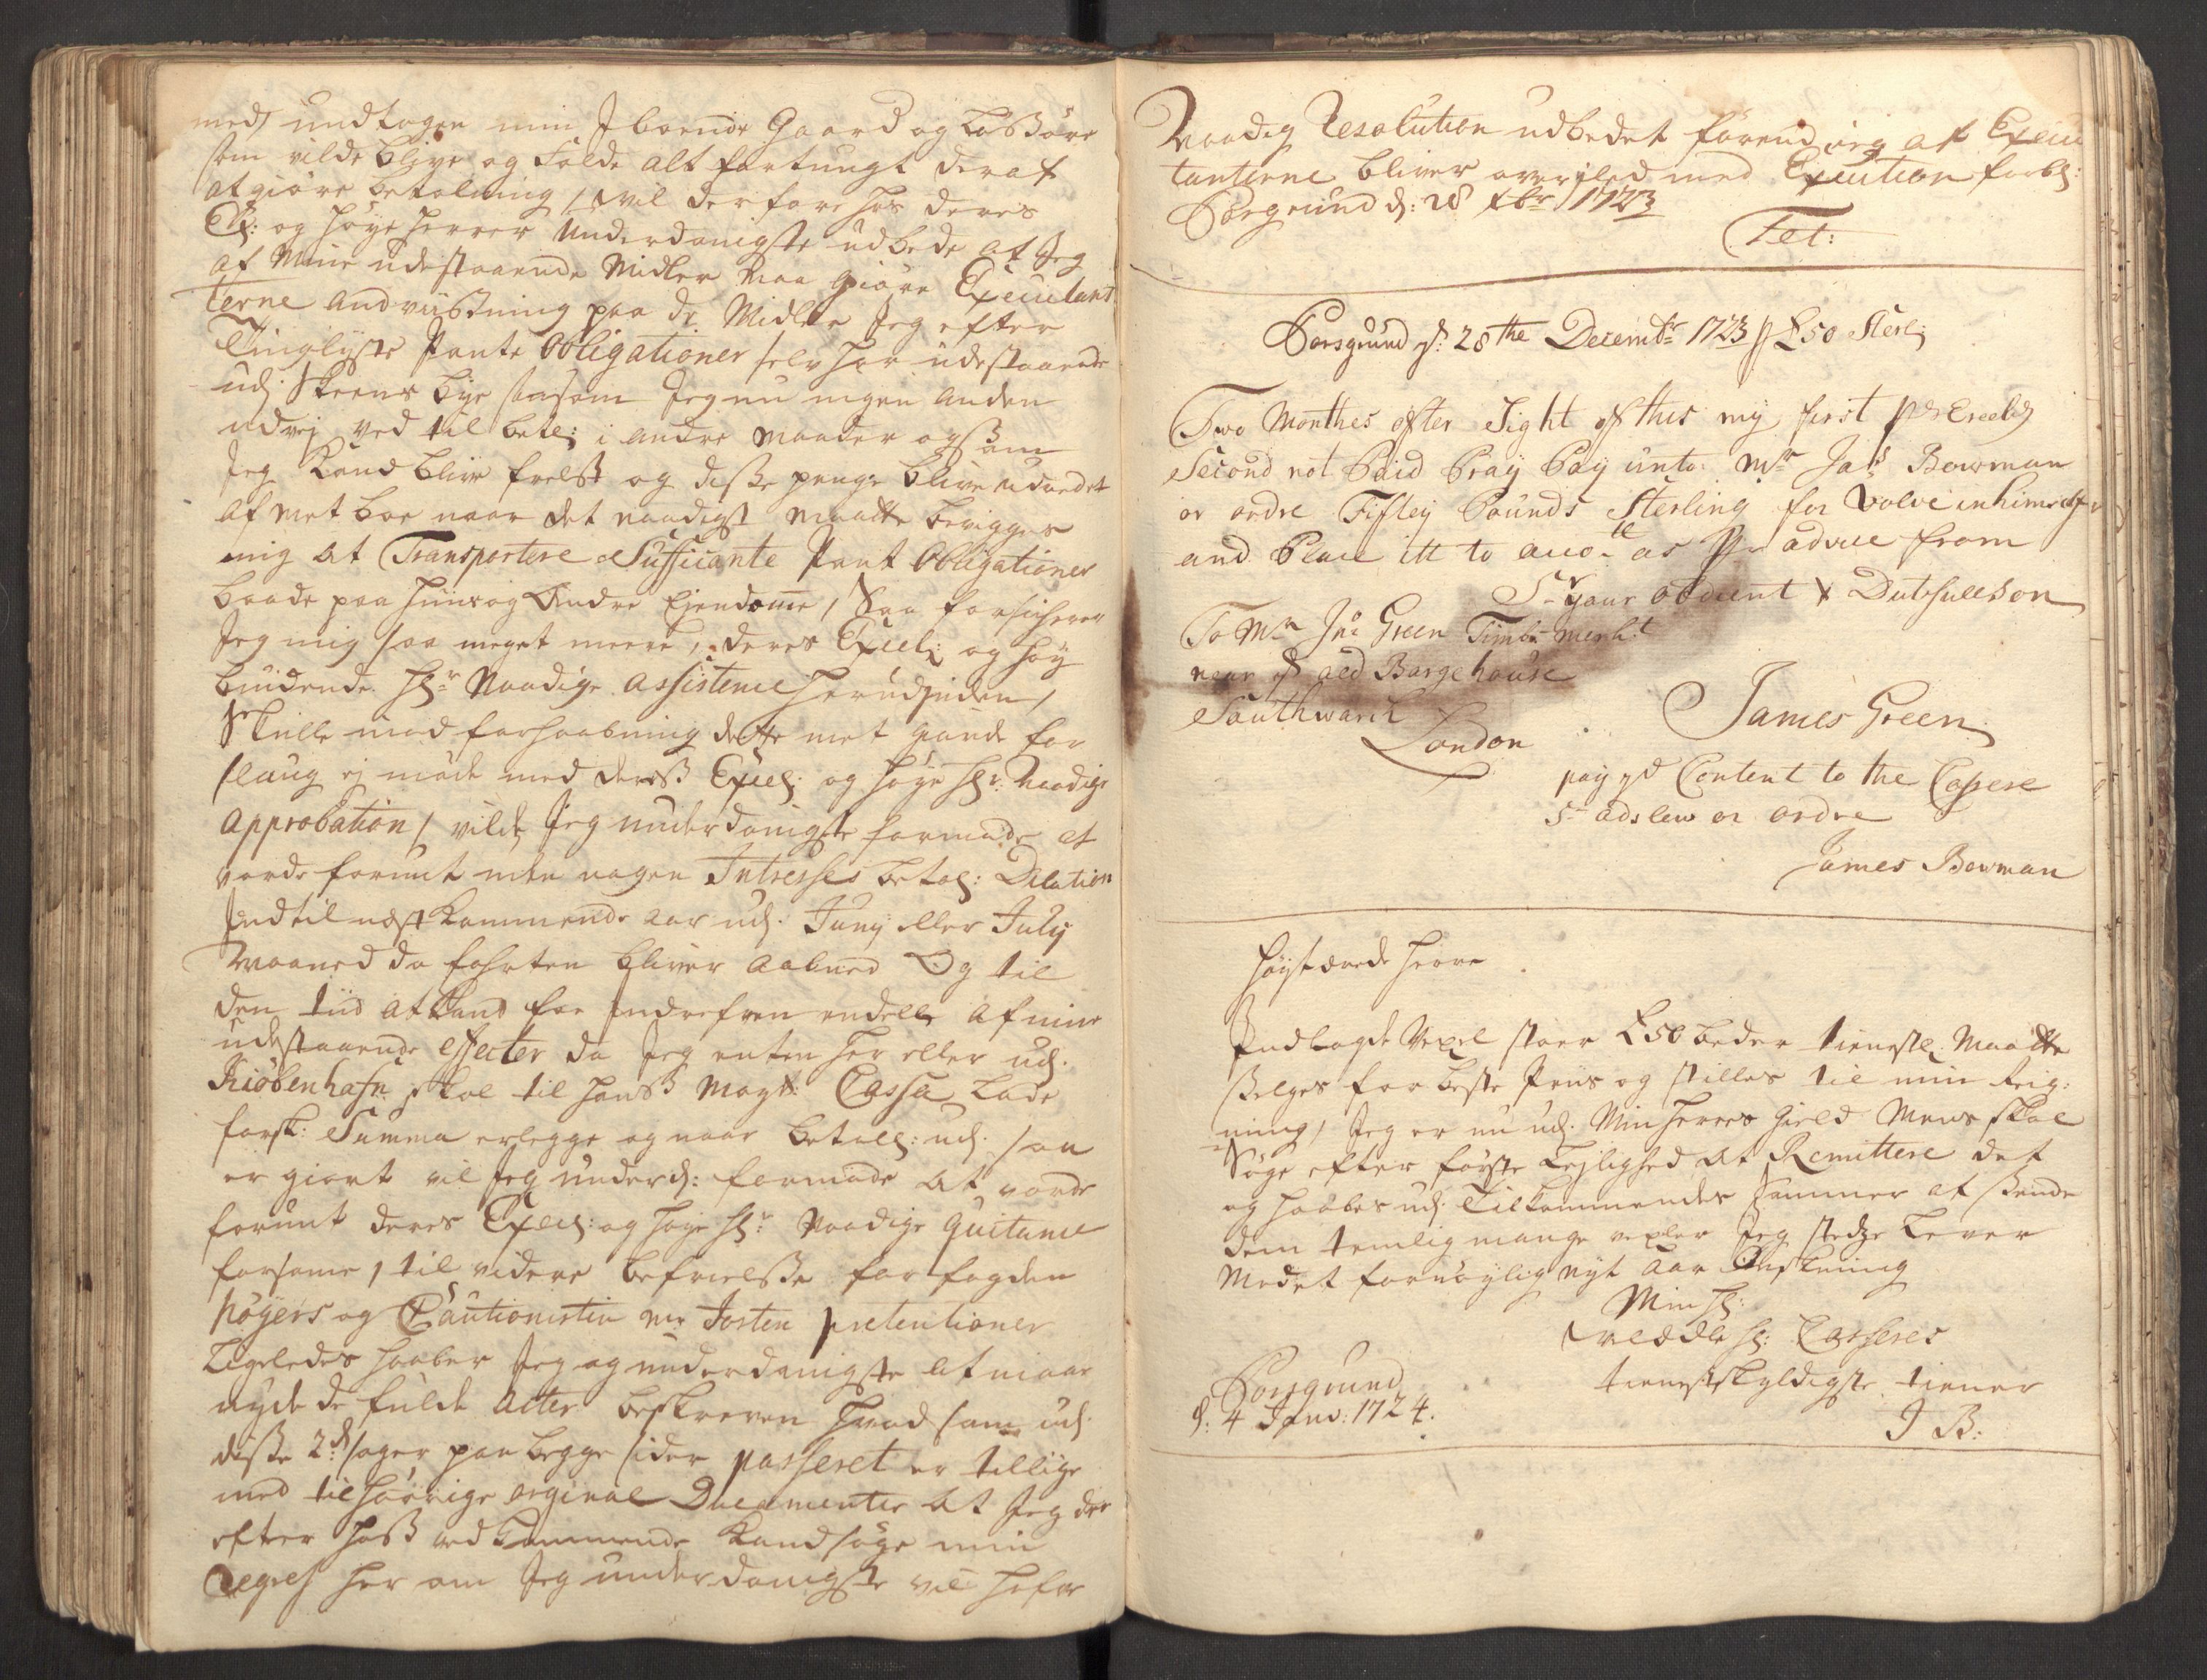 med undtagen min Iboende Gaard og Løsøre
som vilde blive og falde alt fortungt deraf
at giøre betalning, vil derfore hos deres
Ex: og høye herrer underdanigste udbede at Jeg
af Mine udestaaende Midler maa giøre Executant
terne anduiisning paa de Midler Jeg efter
Tinglyste Pante Obligationer selv har udestaaende
udj Skeens bye saasom Jeg nu ingen anden
udvej ved til betl: i andre maader ogsaa
Jeg kand blive frelst og disse penge blive udredet
af met boe naar det naadigst maatte bevilges
mig at Transportere Sufficante Pant Obligationer
baade paa huus og andre Ejendome, Saa forsichrer
Jeg mig saa meget meere, deres Excel: og høy
biudende Hr Naadige assistence herudjnden,
Skulle mod forhaabning dette met giorde for
slaug ej møde med deres Excel: og høye Hr: Naadige
Approbation, vilde Jeg underdanigste formode at
vorde forunt uden nogen Intresses betal: Dilation
Indtil nest kommende aar udj Juny eller July
Maaned da farten bliver aabned Og til
den tiid at kand for Indrefven endelle af mine
udestaaende effecter da Jeg enten her eller udj
Kiøbenhafn skal til hans Mayts Cassa lade
forsk: Summa erlegge og naar betall: udj saa
er giort vil Jeg underd: formode at vorde
forunt deres Excel: og høje Hr: Naadige quitance
forsame, til videre befrielse for fogden
Høyers og Cautionistin Mr Josten pretentioner
Ligeledes haaber Jeg og underdanigste at maae
nyde de fulde Acter beskreven hvad som udj
disse 2de sager paa begge sider passeret er tillige
med tilhørrige orginal Documenter at Jeg der
efter hos vedkommende kand søge min
Regres her om Jeg underdanigste vil hafve
Naadig Resolution udbedet førend jeg af Execu
tanterne bliver overjled med Execution forbl:
Porsgrund d: 28 Xbr 1723
Tet:
Porsgrund d: 28the Decembr 1723 p £50 Sterl:
Two Monthes after Sight of this my first
Second not Paid Pray Pay unto Mr Jas Bowman
or ordre Fiftey Pounds Sterling for Valve in himself
and Place itt to acco:tt as Pr advice from
Sr your obdient & Dutifull Son
To Mr Jno Green Timbr merht
near ye aed Barge house
Southwarck
London
James Green
pay ye Content to the Cassere
Sr adslew or ordre
James Bowman
Høystærede Herre
Indlagde Vexel stoer £50 beder tienestl: Maatte
sselges for beste Priis og stilles til min Reig:
ning, Jeg er nu udj Min Herres Gield Mens skal
Søge efter første Leylighed at Remittere det
og haabes udj Tilkommende Sommer at sende
dem temlig mange vexler Jeg stedze Lever
Medet fornøylig nyt aar Ønskning
Min Hr:
Velædle Hr: Casseres
tienstskyldigste tiener
J B:
Porsgrund
d. 4 Janv: 1724.